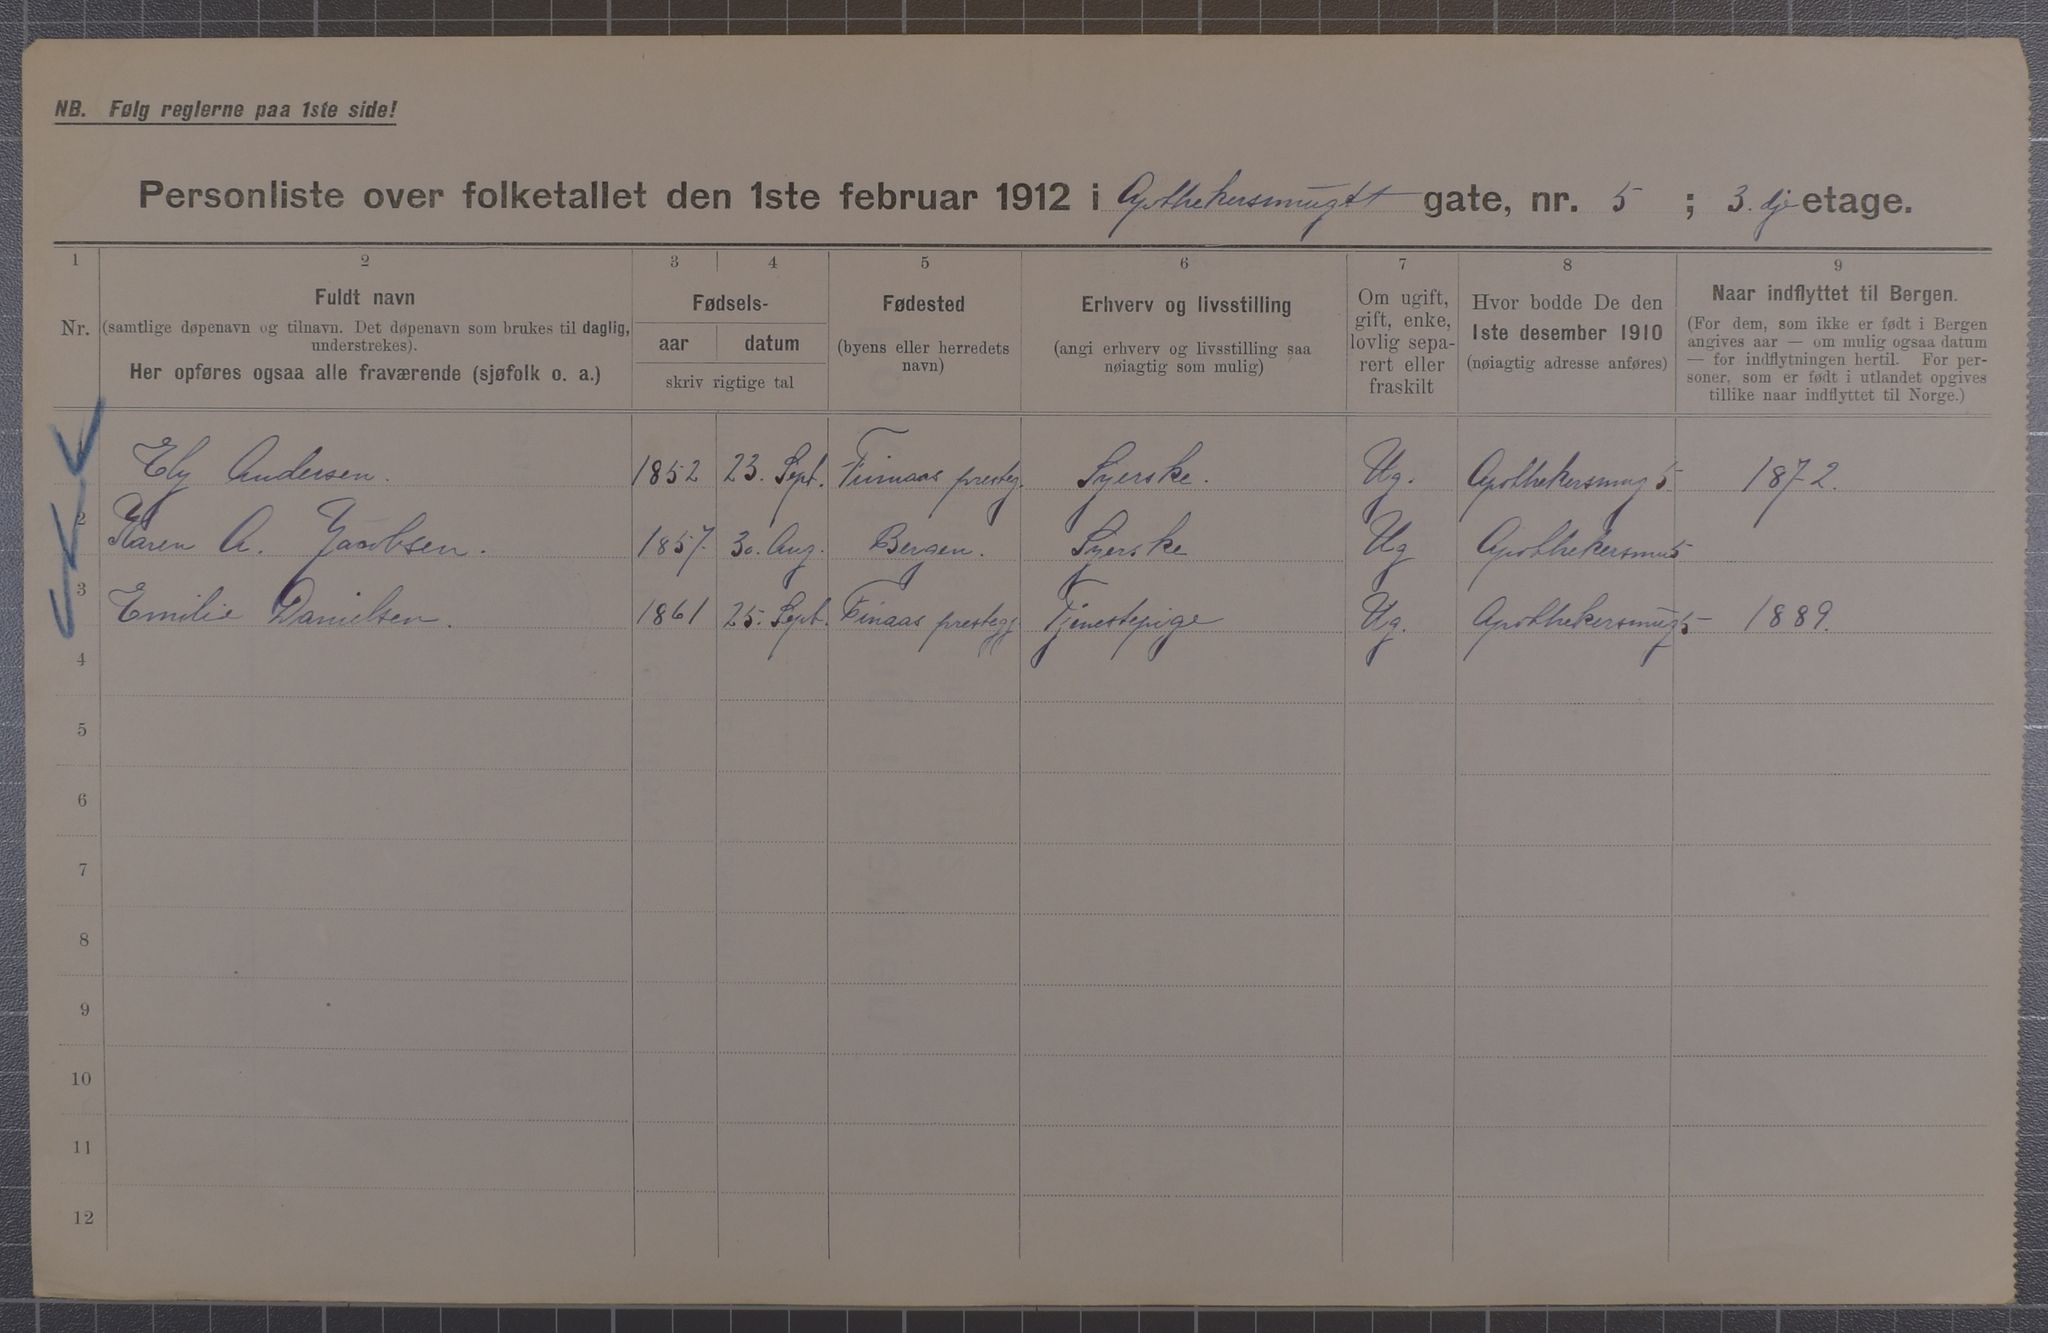 NB. Følg reglerne paa 1ste side!
Personliste over folketallet den 1ste februar 1912 i Apothekersmugdt gate, nr. 5 ; 3. dje etage.
1 2 3 4 5 6 7 8 9
Nr.
Fuldt navn
(samtlige døpenavn og tilnavn. Det døpenavn som brukes til daglig,
understrekes).
Her opføres ogsaa alle fraværende (sjøfolk o. a.)
Fødsels-
aar datum
skriv rigtige tal
Fødested
(byens eller herredets
navn)
Erhverv og livsstilling
(angi erhverv og livsstilling saa
nøiagtig som mulig)
Om ugift,
gift, enke,
lovlig sepa-
rert eller
fraskilt
Hvor bodde De den
1ste desember 1910
(nøiagtig adresse anføres)
Naar indflyttet til Bergen.
(For dem, som ikke er født i Bergen
angives aar — om mulig ogsaa datum
— for indflytningen hertil. For per-
soner, som er født i utlandet opgives
tillike naar indflyttet til Norge.)
Ely Andersen. 1852 23. Sept. Finnaas presteg. Syerske. Ug. Apothekersmug 5 1872.
2 Karen A. Jacobsen. 1857. 30. Aug. Bergen. Syerske Ug Apothekersmu 5
3 Emilie Danielsen. 1861 25. Sept. Finaas prestegj Tjenestepige Ug. Apothekersmug 5 1889.
4
5
6
7
8
9
10
11
12